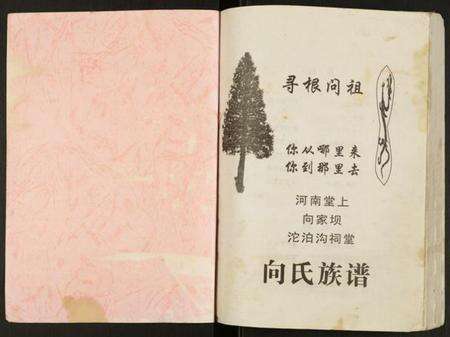 寻根问祖
你从哪里来
你到那里去
河南堂上
向家坝
沱泊沟祠堂
向氏族谱